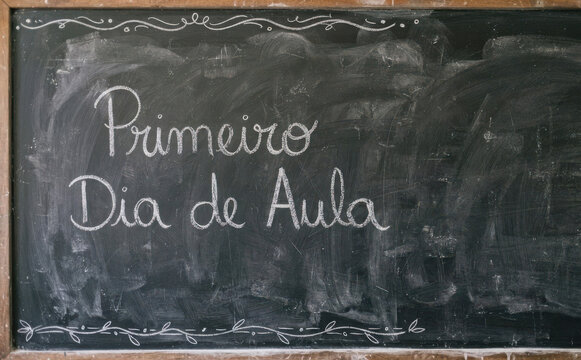 Primeiro
Dia de Aula